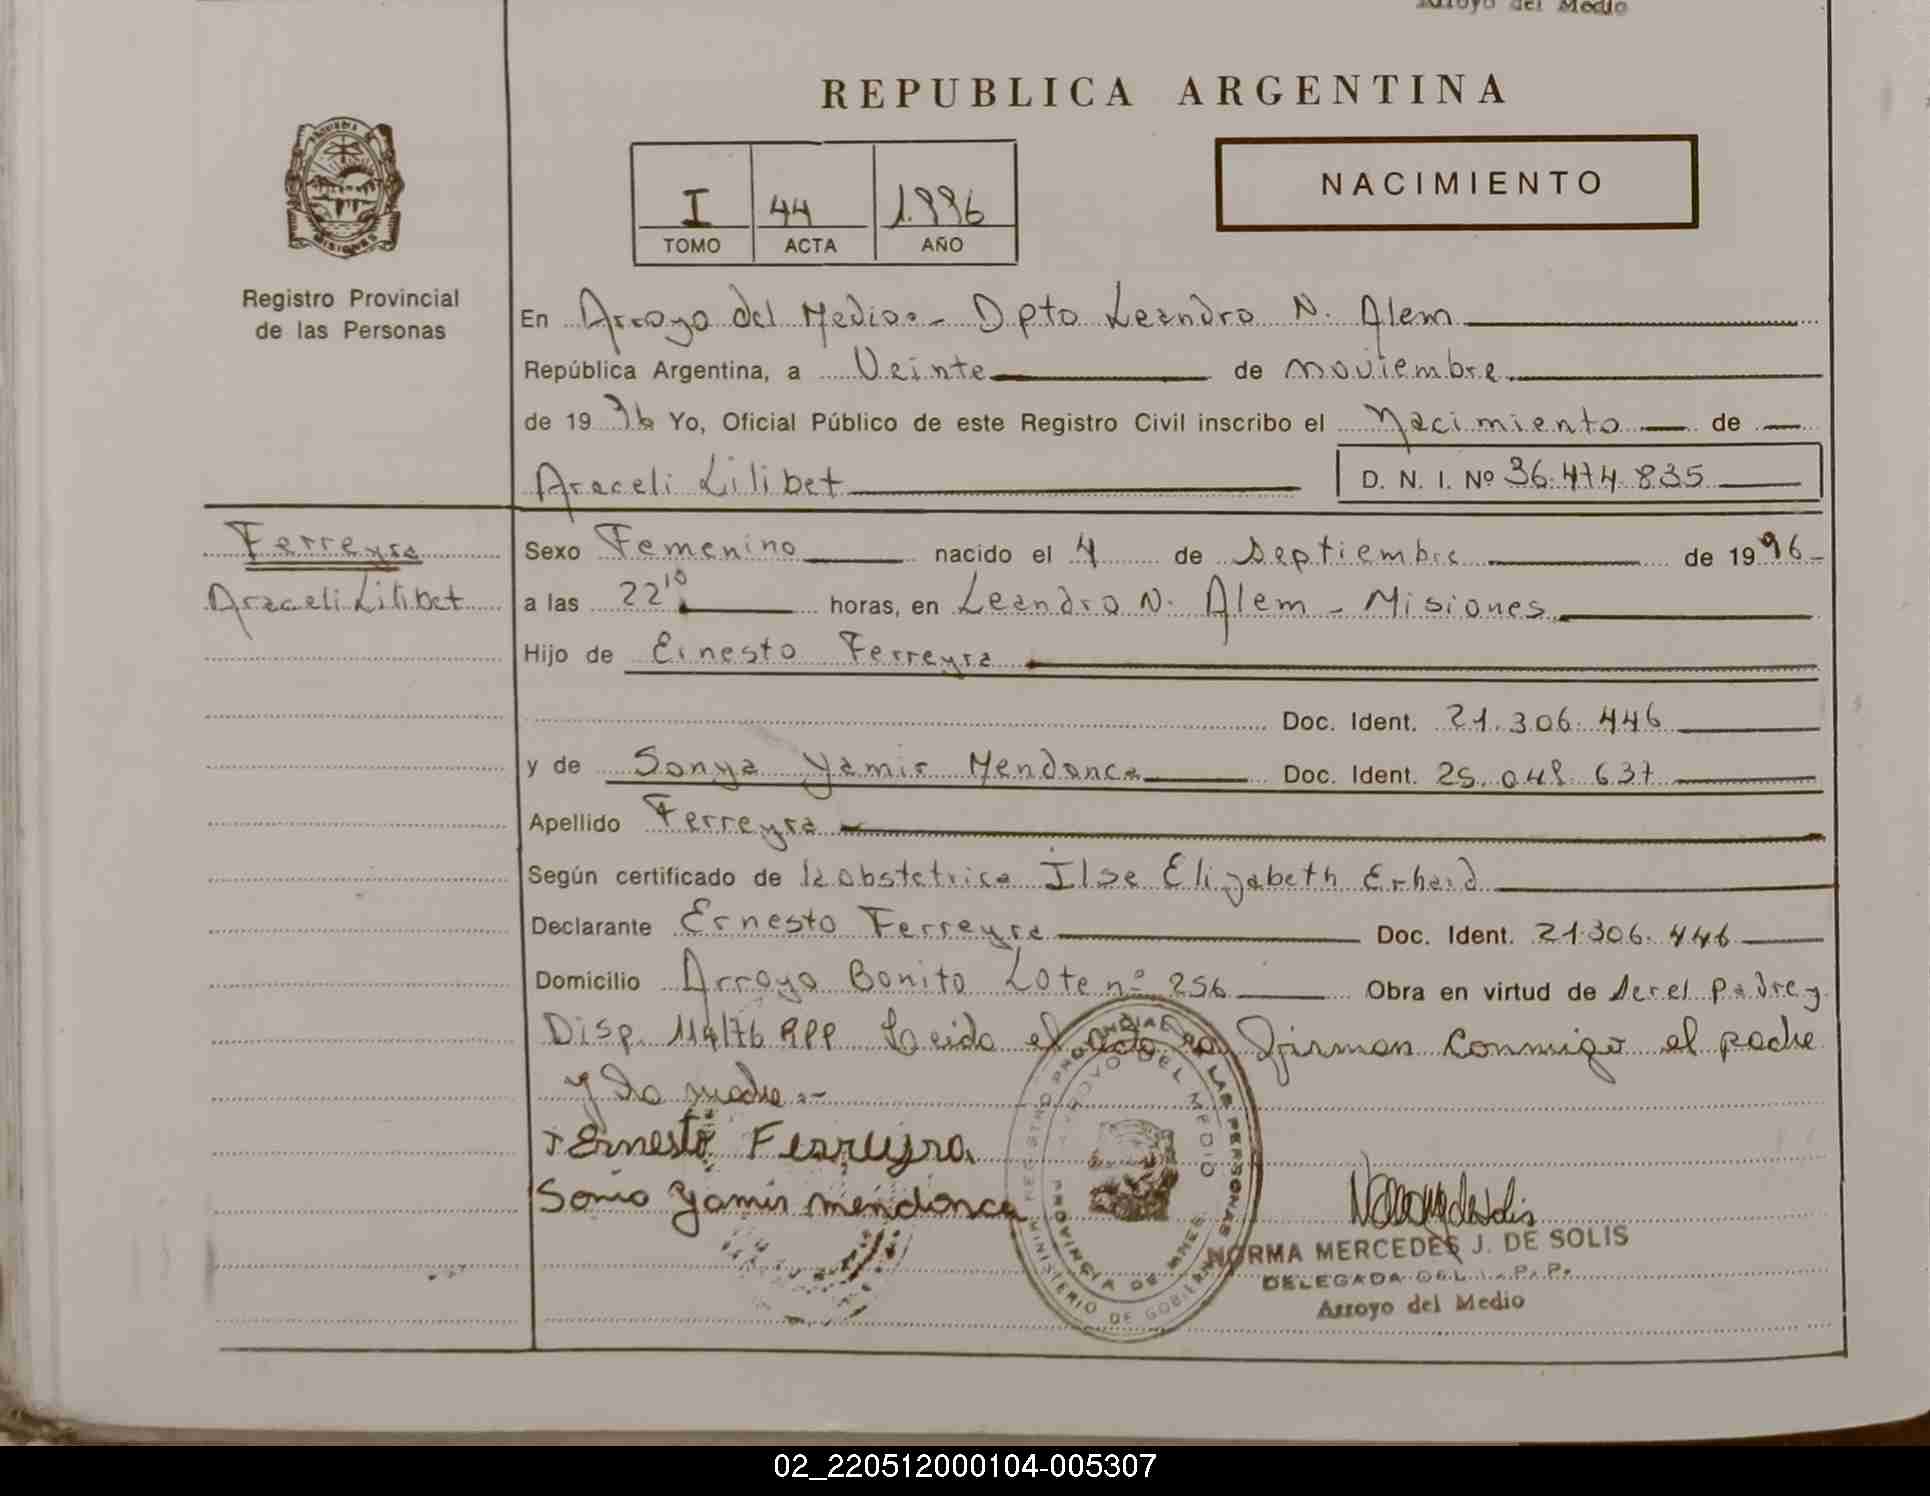 Arroyo del Medio
REPUBLICA ARGENTINA
NACIMIENTO
I 44 1.996
TOMO ACTA AÑO
MISIONES
Registro Provincial
de las Personas
En Arroyo del Medio.- Dpto Leandro N. Alem
República Argentina, a Veinte de noviembre
de 1996 Yo, Oficial Público de este Registro Civil inscribo el Nacimiento de
Araceli Lilibet D. N. I. Nº 36.474.835
Ferreyra
Araceli Lilibet
Sexo Femenino nacido el 4 de Septiembre de 1996-
a las 22 10 horas, en Leandro N. Alem - Misiones
Hijo de Ernesto Ferreyra
Doc. Ident. 21.306.446
y de Sonya Yamir Mendonca Doc. Ident. 25.048.637
Apellido Ferreyra
Según certificado de la obstetrica Ilse Elizabeth Erhard
Declarante Ernesto Ferreyra Doc. Ident. 21.306.446
Domicilio Arroyo Bonito Lote nº 256 Obra en virtud de ser el padre y
Disp. 114/76 RPP Leida el Acta la firman conmigo el padre
y la madre.-
Ernesto Ferreyra
Sonia Yamir Mendonca
REGISTRO PROVINCIAL DE LAS PERSONAS
ARROYO DEL MEDIO
PROVINCIA DE MNES
MINISTERIO DE GOBIERNO
NORMA MERCEDES J. DE SOLIS
DELEGADA DEL R.P.P.
Arroyo del Medio
02_220512000104-005307